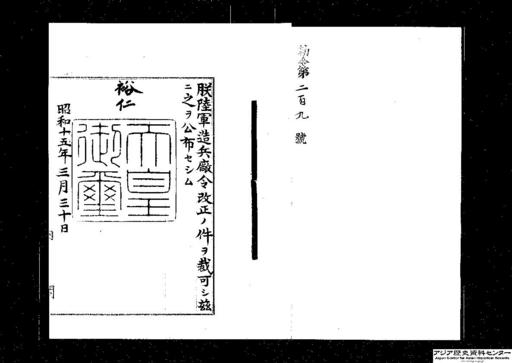 勅令第二百九號
朕陸軍造兵廠令改正ノ件ヲ裁可シ茲
ニ之ヲ公布セシム
裕仁
天皇
御璽
昭和十五年三月三十日
アジア歴史資料センター
Japan Center for Asian Historical Records